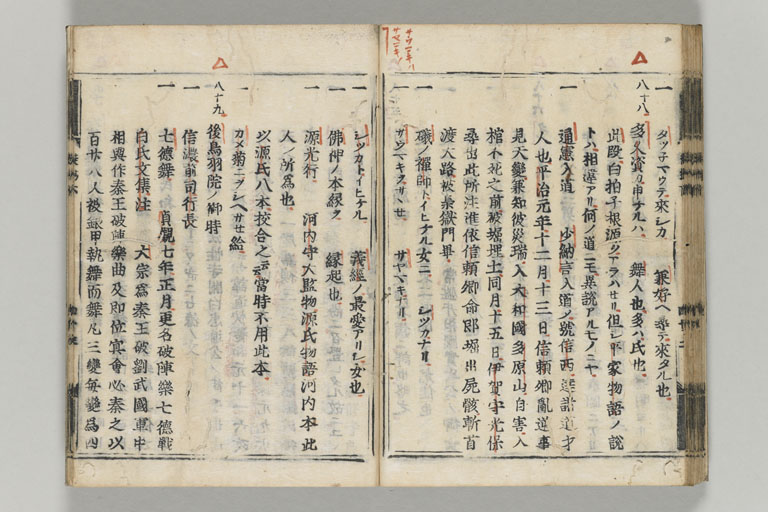 一 タツ子マウテ來シカ 兼好ヘ尋テ來タル也
八十八
一 多久資カ申ナルハ 舞人也多ハ氏也
此段白拍子根源クハシクハラハセリ但シ平家物語ノ説
トハ相違アリ何ノ道ニモ異説アルモノニヤ
一 通憲入道 少納言入道ノ號信西
人也平治元年十二月十三日信頼卿亂道事
見天變兼知彼災瑞入大和國多原山自害入
棺不死之前被堀埋土同月十五日伊賀守光保
尋出此所注進依信頼卿命郎堀出屍骸斬首
渡大路被梟獄門畢
一 磯ノ禪師トイヒケル女ニ シツカナリ
サウマキヲサヽせ サヤマキナリ
一 シツカトイヒケル 義經ノ最愛アリシ女也
一 佛神ノ本緣ク 緣起也
一 源光行 河内守大監物源氏物語河内本此
人ノ所爲也
以源氏八本挍合之云云當時不用此本
カメ菊ニヲシヘサせ給
八十九
一 後鳥羽院ノ御時
一 信濃前司行長
一 七德舞 貞觀七年正月更名破陳樂七德戰
白氏文集注 大宗爲秦王破劉武國軍中
相與作秦王破陳樂曲及即位宴會必奏之以
百廿八人被銀甲執戟而舞凡三變每變爲四